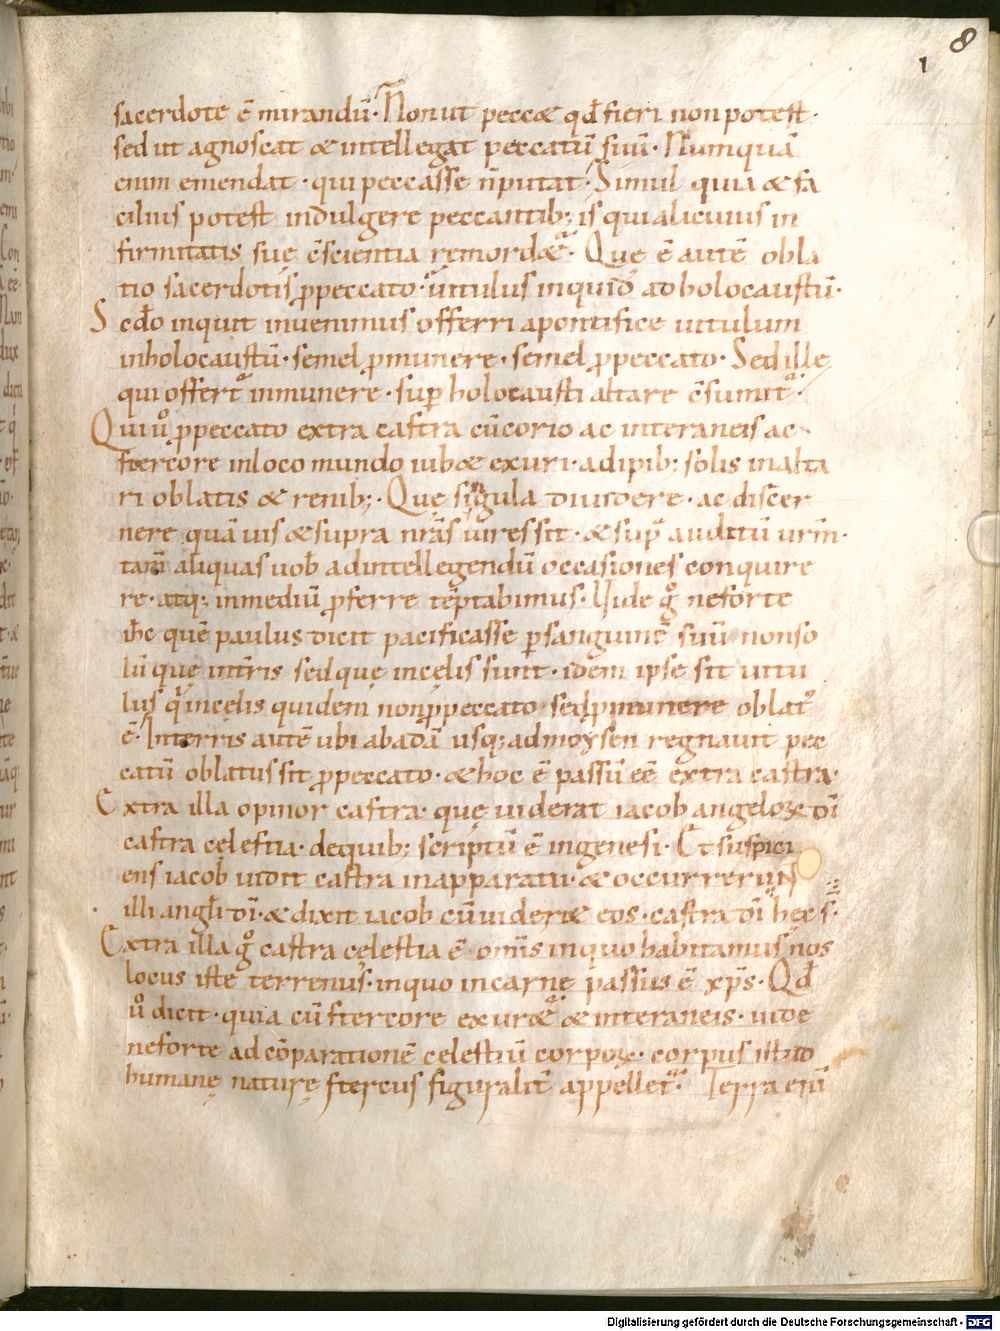 8
1
sacerdote ē mirandū· Non ut peccæ qd̄ fieri non potest·
sed ut agnoscat & intellegat peccatū suū· Numquā
enim emendat· qui peccasse n̄ putat· Simul quia & fa
cilius potest indulgere peccantib; is qui alicuius in
firmitatis suę c̄scientia remordæ· Quę ē autē obla
tio sacerdotis p̱ peccato· uitulus inquid ad holocaustū·
Scdo inquit inuenimus offerri a pontifice uitulum
in holocaustū· semel p̱ munere· semel p̱ peccato· Sed ille
qui offert in munere· sup̄ holocausti altare c̄sumit·
Qui ů p̱ peccato extra castra cū corio ac interaneis ac
stercore in loco mundo iubæ exuri· adipib; solis in alta
ri oblatis & renib;· Quę singula diuidere· ac discer
nere quāuis & supra nr̄as uires sit· & sup̄ auditū urm̄·
tam̄ aliquas uob̄ ad intellegendū occasiones conquire
re· atq; in mediū p̱ferre tēptabimus· Uide g̊ ne forte
ih̄c quē paulus dicit pacificasse p̱ sanguinē suū non so
lū quę in tr̄is sed quę in cęlis sunt· idem ipse sit uitu
lus qui in cęlis quidem non p̱ peccato sed p̱ munere oblat᷒
ē· In terris autē ubi ab adā usq; ad moysen regnauit pec
catū oblatus sit p̱ peccato· & hoc ē passū eē extra castra·
Extra illa opinor castra· quę uiderat iacob angeloꝝ dī
castra cęlestia· de quib; scriptū ē in genesi· Et suspici
ens iacob uidit castra in apparatu· & occurrerunt
illi angl̄i dī· & dixit iacob cū uideræ eos· castra dī hęc s̄·
Extra illa g̊ castra cęlestia ē omīs in quo habitamus nos
locus iste terrenus· in quo in carne passus ē xp̄s· Qd̄
ů dicit· quia cū stercore exuræ & interaneis· uide
ne forte ad cōparationē celestiū corpoꝝ· corpus istud
humanę naturę stercus figuralit̄ appellet· Terra enī
Digitalisierung gefördert durch die Deutsche Forschungsgemeinschaft - DFG